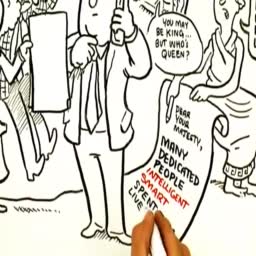 YOU MAY
BE KING...
BUT WHO'S
QUEEN?
DEAR
YOUR
MAJESTY,
MANY
DEDICATED
PEOPLE
INTELLIGENT
SMART
SPENT
LIVE